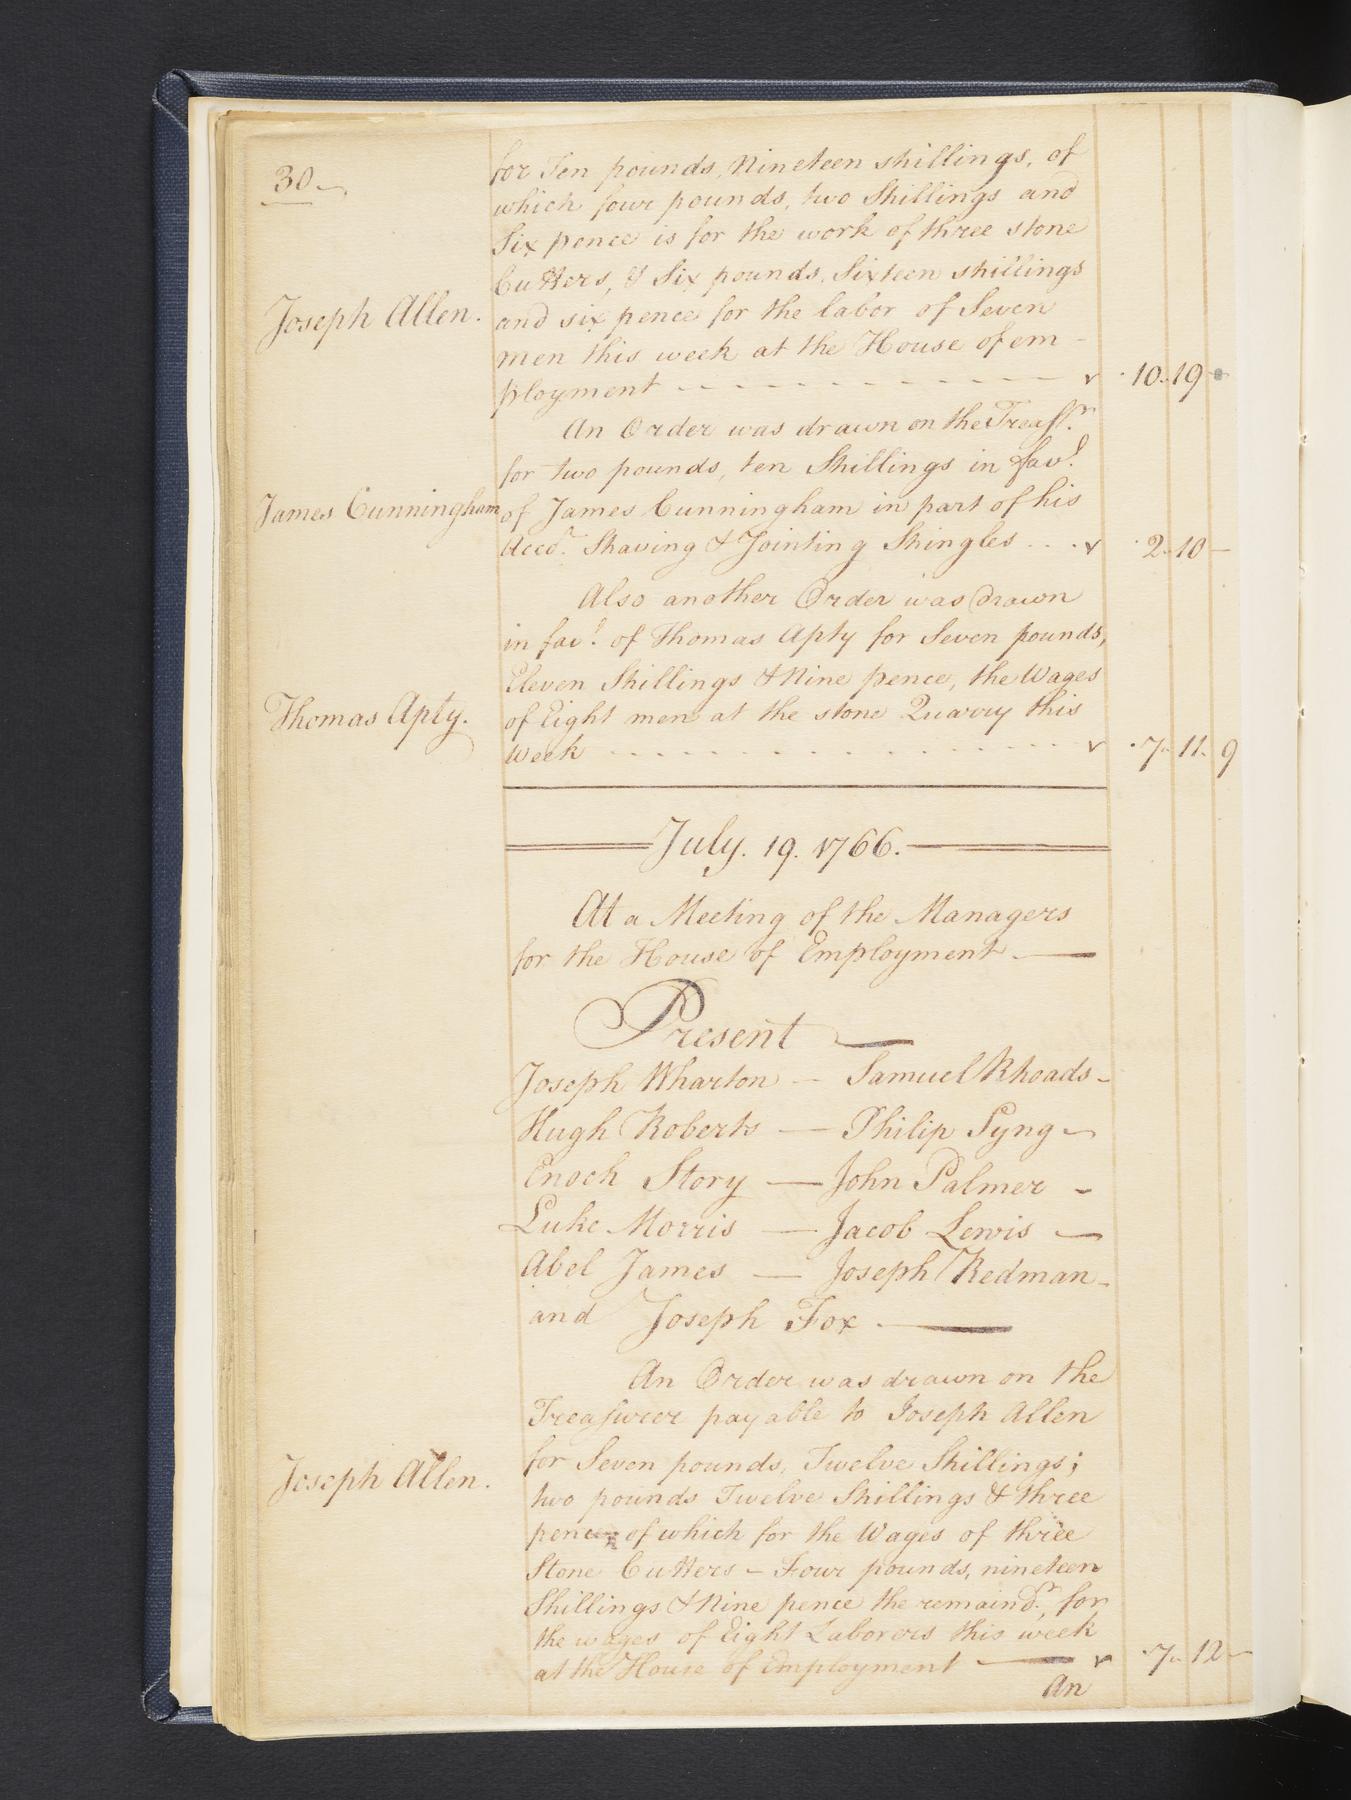 30
for Ten pounds, Nineteen shillings, of
which four pounds, two Shillings and
Six pence is for the work of three stone
Cutters, & Six pounds, Sixteen shillings
Joseph Allen.
and six pence for the labor of Seven
men this week at the House of em-
ployment - - - - - - - - - - - - - - v 10..19
An Order was drawn on the Treasr.
for two pounds, ten Shillings in favr.
James Cunningham
of James Cunningham in part of his
Acco. Shaving & Jointing Shingles - - - v 2..10 —
Also another Order was drawn
in favr. of Thomas Apty for Seven pounds,
Eleven Shillings & Nine pence, the Wages
Thomas Apty.
of Eight men at the stone Quarry this
Week - - - - - - - - - - - - - - - v 7..11..9
July. 19. 1766.
At a Meeting of the Managers
for the House of Employment —
Present —
Joseph Wharton — Samuel Rhoads -
Hugh Roberts — Philip Syng —
Enoch Story — John Palmer -
Luke Morris — Jacob Lewis —
Abel James — Joseph Redman -
and Joseph Fox —
An Order was drawn on the
Treasurer payable to Joseph Allen
Joseph Allen.
for Seven pounds, Twelve Shillings;
two pounds Twelve Shillings & three
pence of which for the Wages of three
Stone Cutters - Four pounds, nineteen
Shillings & Nine pence the remaindr. for
the wages of Eight Laborers this week
at the House of Employment — v 7..12 —
An